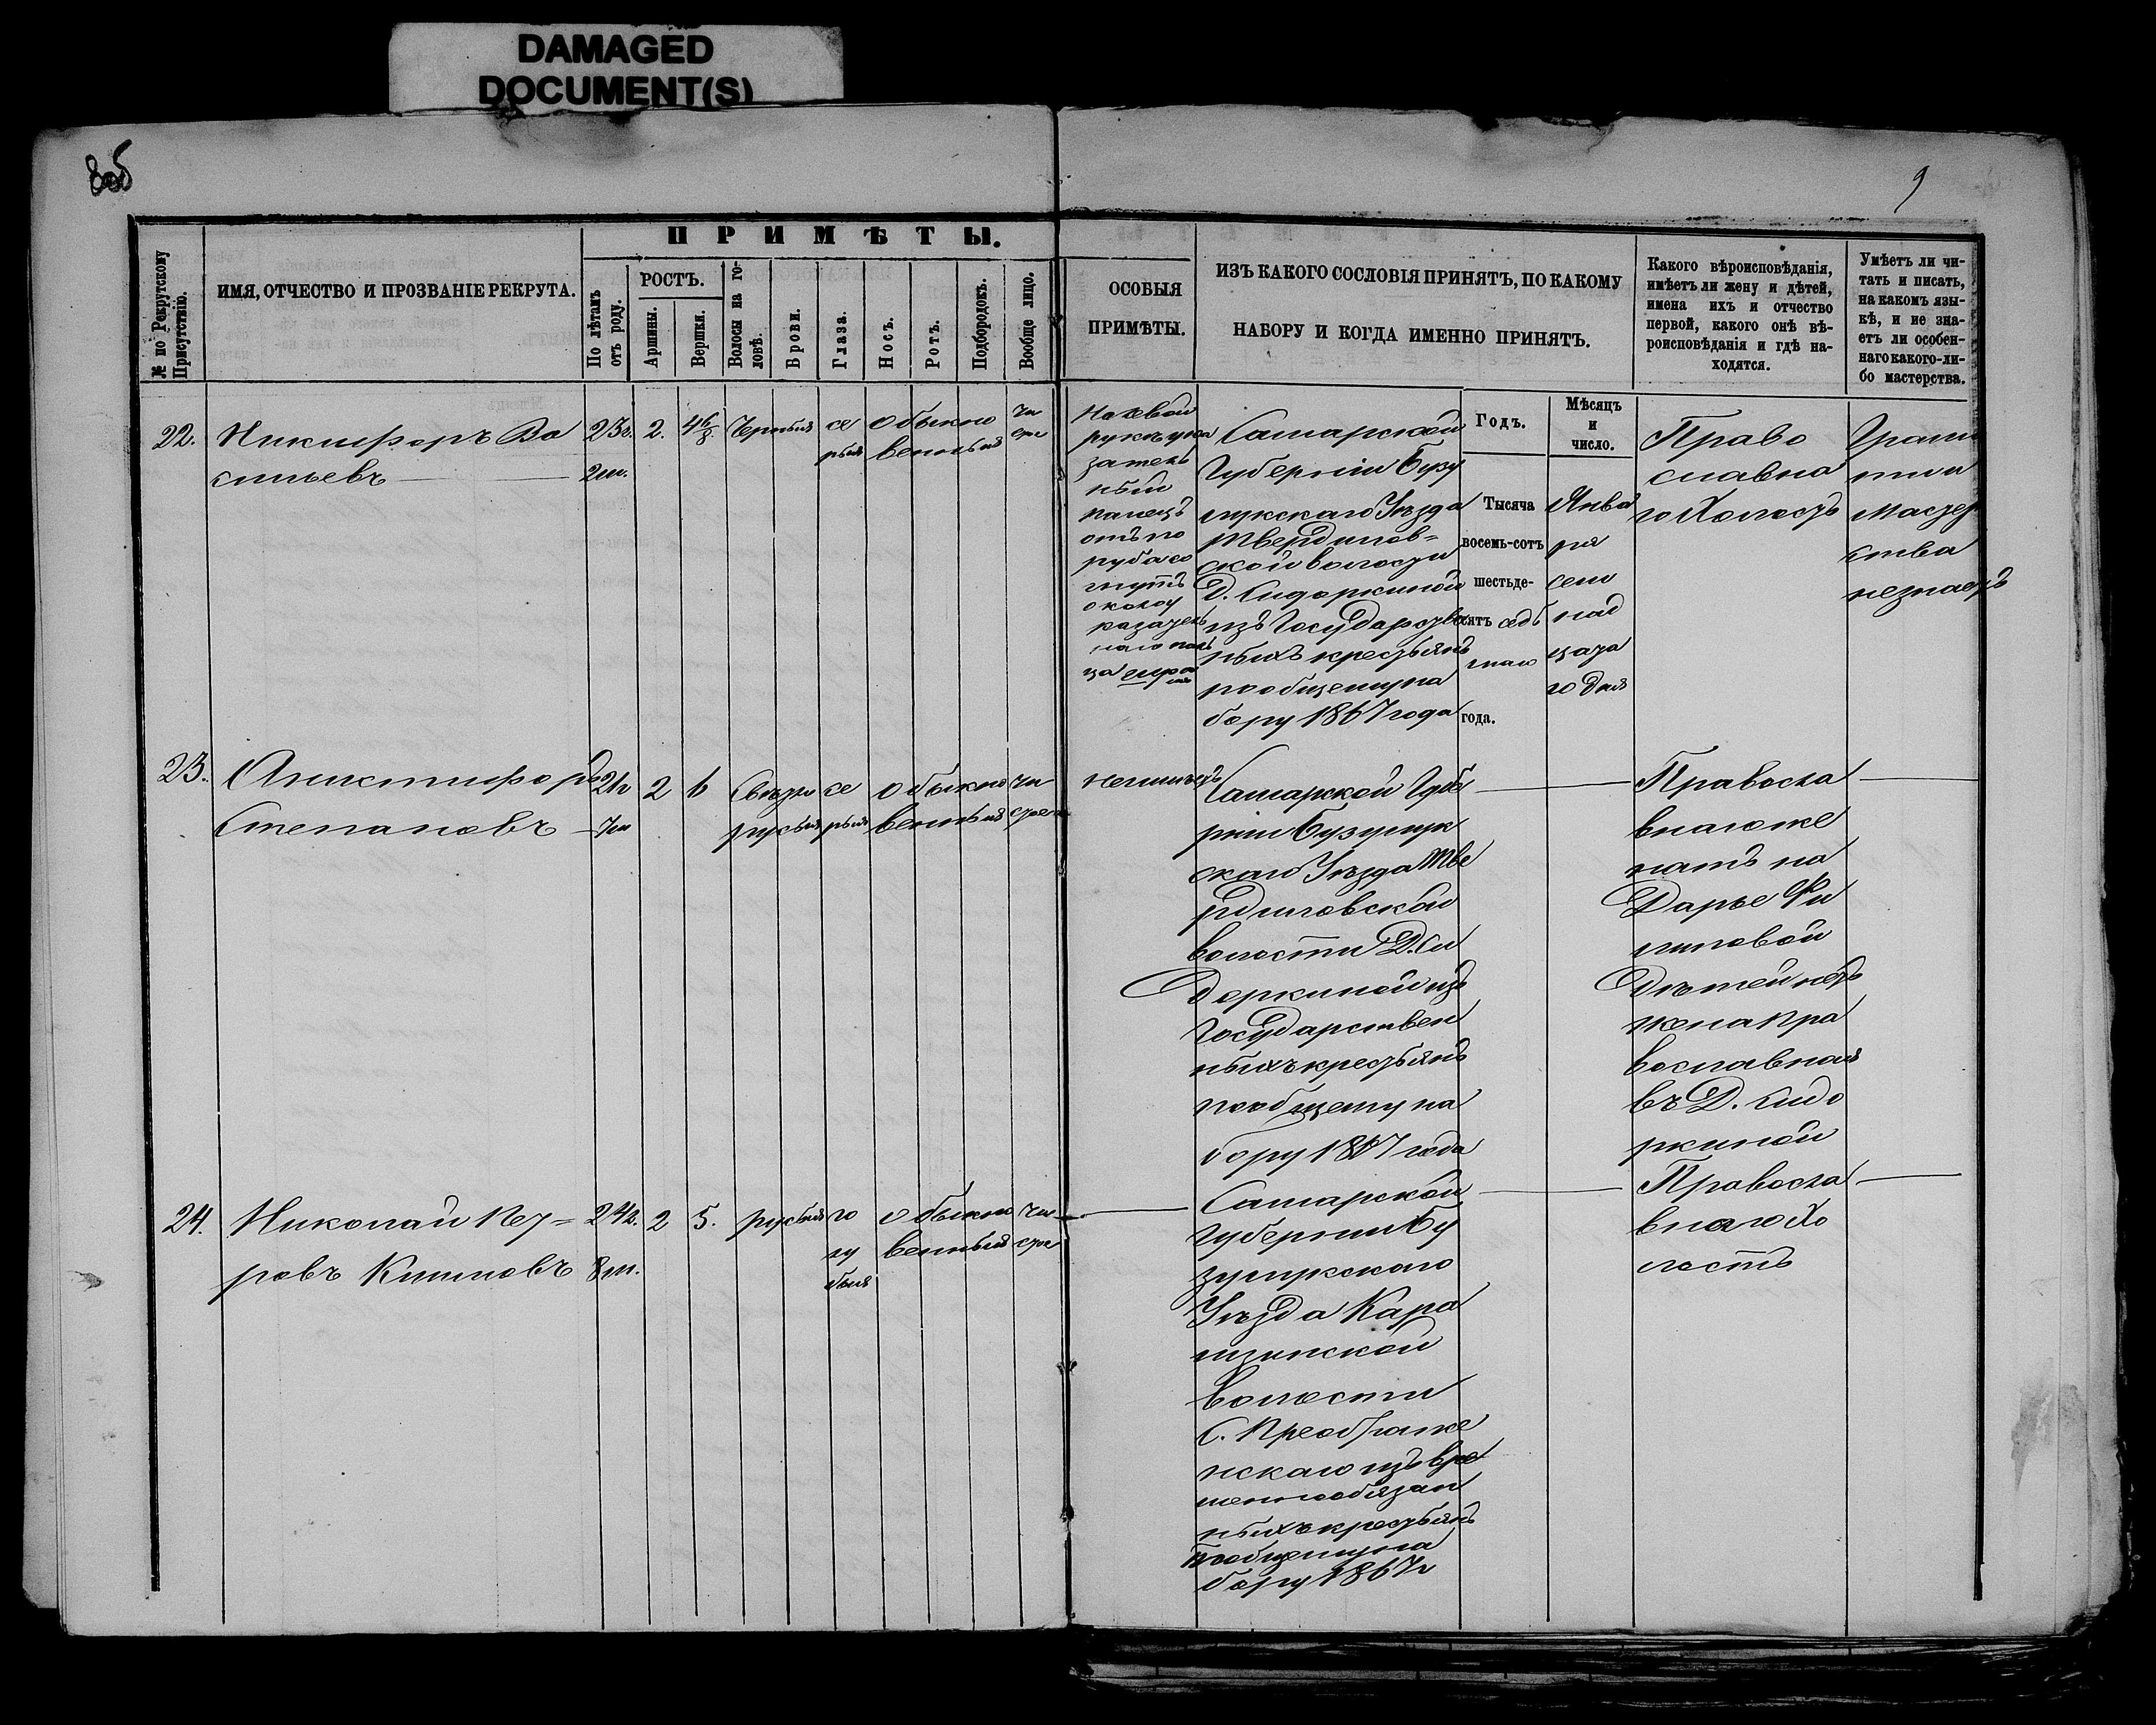 DAMAGED
DOCUMENT(S)
8об
9
П Р И М Ѣ Т Ы.
№ по Рекрутскому
Присутствію.
ИМЯ, ОТЧЕСТВО И ПРОЗВАНІЕ РЕКРУТА.
По лѣтамъ
отъ роду.
РОСТЪ.
Аршины.
Вершки.
Волосы на го-
ловѣ.
Брови.
Глаза.
Носъ.
Ротъ.
Подбородокъ.
Вообще лицо.
ОСОБЫЯ
ПРИМѢТЫ.
ИЗЪ КАКОГО СОСЛОВІЯ ПРИНЯТЪ, ПО КАКОМУ
НАБОРУ И КОГДА ИМЕННО ПРИНЯТЪ.
Какого вѣроисповѣданія,
имѣетъ ли жену и дѣтей,
имена ихъ и отчество
первой, какого онѣ вѣ-
роисповѣданія и гдѣ на-
ходятся.
Умѣетъ ли чи-
тать и писать,
на какомъ язы-
кѣ, и не зна-
етъ ли особен-
наго какого-ли-
бо мастерства.
22.
Никифоръ Ва
сильевъ
23г.
2м.
2.
4 6/8.
Черныя
се
рыя
обыкно
венныя
чи
стое
на левой
руке ука
затель
ный
палецъ
отъ по
руба со
гнутъ
около
указатель
наго паль
ца
Самарской
Губерніи Бузу
лукскаго Уѣзда
Твердилов=
ской волости
Д. Сидоркиной
изъ Государствен
ныхъ крестьянъ
по общему на
бору 1867 года
Годъ.
Тысяча
восемь-сотъ
шестьде-
сятъ седь
маго
года.
Мѣсяцъ
и
число.
Янва
ря
сем
над
цата
го дня
Право
славна
го Холостъ
Грамм
ты и
мастер
ства
незнаетъ
23.
Аниктифоръ
Степановъ
21г
7м
2
6
Свѣтло
русыя
се
рыя
обыкно
венныя
чи
стое
неимѣетъ
Самарской Губе
рніи Бузулук
скаго Уѣзда Тве
рдиловской
волости Д. Си
доркиной изъ
Государствен
ныхъ крестьянъ
по общему на
бору 1867 года
Правосла
внаго же
натъ на
Дарье Фи
липовой
Дѣтей нетъ
жена пра
вославная
въ Д. Сидо
ркиной
24.
Николай Пет=
ровъ Климовъ
24г.
8м.
2
5.
русыя
го
лу
быя
обыкно
венный
чи
стое
Самарской
Губерніи Бу
зулукскаго
Уѣзда Кара
лзинской
волости
С. Преображе
нскаго изъ вре
меннообязан
ныхъ крестьянъ
по общему на
бору 1867г
Правосла
внаго Хо
лостъ